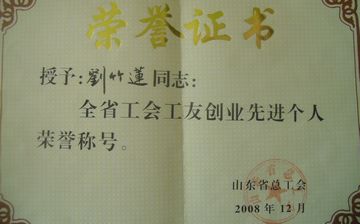 荣誉证书
授予:劉竹蓮同志:
全省工会工友创业先进个人
荣誉称号。
山东省总工会
2008年12月